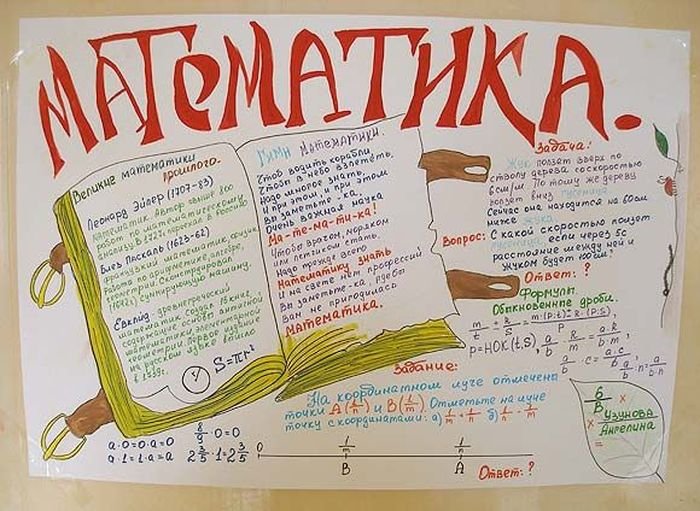 МАТЕМАТИКА.
Великие математики
прошлого.
Леонард Эйлер (1707-83)
математик. Автор свыше 800
работ по математическому
анализу. В 1727г переехал в Россию
Блез Паскаль (1623-62)
французкий математик, физик
работа по арифметике, алгебре,
геометрии. Сконструировал
(1642г) суммирующую машину.
Евклид, древнегреческий
математик создал 15 книг,
содержащие основы античной
математики, элементарной
геометрии. Первое издание
на русском языке вышло
в 1739г.
S=πr²
ГИМН МАТЕМАТИКИ.
Чтоб водить корабли,
Чтобы в небо взлететь,
Надо многое знать,
И при этом, и при этом
Вы заметьте-ка,
Очень важная наука
Ма-те-ма-ти-ка!
Чтобы врачом, моряком
или летчиком стать,
Надо прежде всего
Математику знать
И на свете нет профессий
Вы заметьте-ка, где бы
Вам не пригодилась
МАТЕМАТИКА.
Задача:
Жук ползет вверх по
стволу дерева со скоростью
6см/м. По тому же дереву
ползет вниз гусеница.
Сейчас она находится на 60см
ниже жука.
Вопрос: С какой скоростью ползет
гусеница, если через 5с
расстояние между ней и
жуком будет 100см?
Ответ: ?
Формулы.
Обыкновенные дроби.
P=НОК(t,S),
Задание:
На координатном луче отмечены
точки A(1/n) и B(1/m). Отметьте на луче
точку с координатами: а) 1/m + 1/n б) 1/n - 1/m
a·0=0·a=0
a·1=1·a=a
8/9·0=0
2 3/5·1=2 3/5
0 1/m 1/n
B A
Ответ: ?
6
В
Узунова
Ангелина